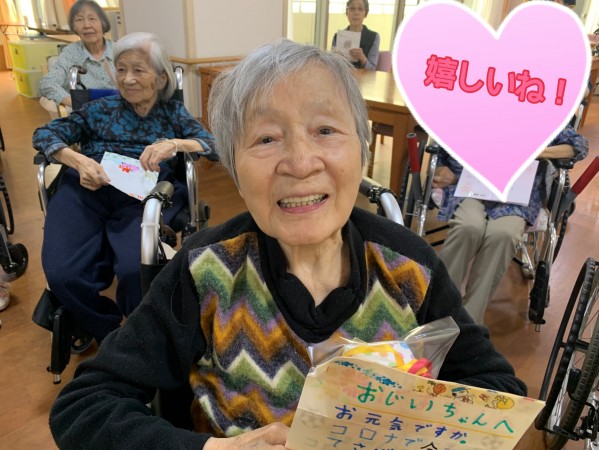 嬉しいね!
おじいちゃんへ
お元気ですか。
コロナで会
てさび